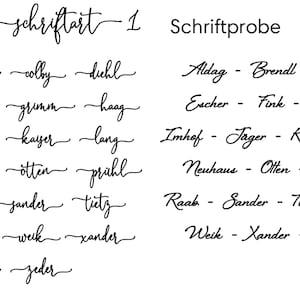 schriftart 1
colby diehl
grimm haag
kaiser lang
otten prühl
sander tietz
weik xander
zeder
Schriftprobe
Aldag - Brendl
Escher - Fink -
Imhof - Jäger -
Neuhaus - Otten
Raab - Sander -
Weik - Xander -